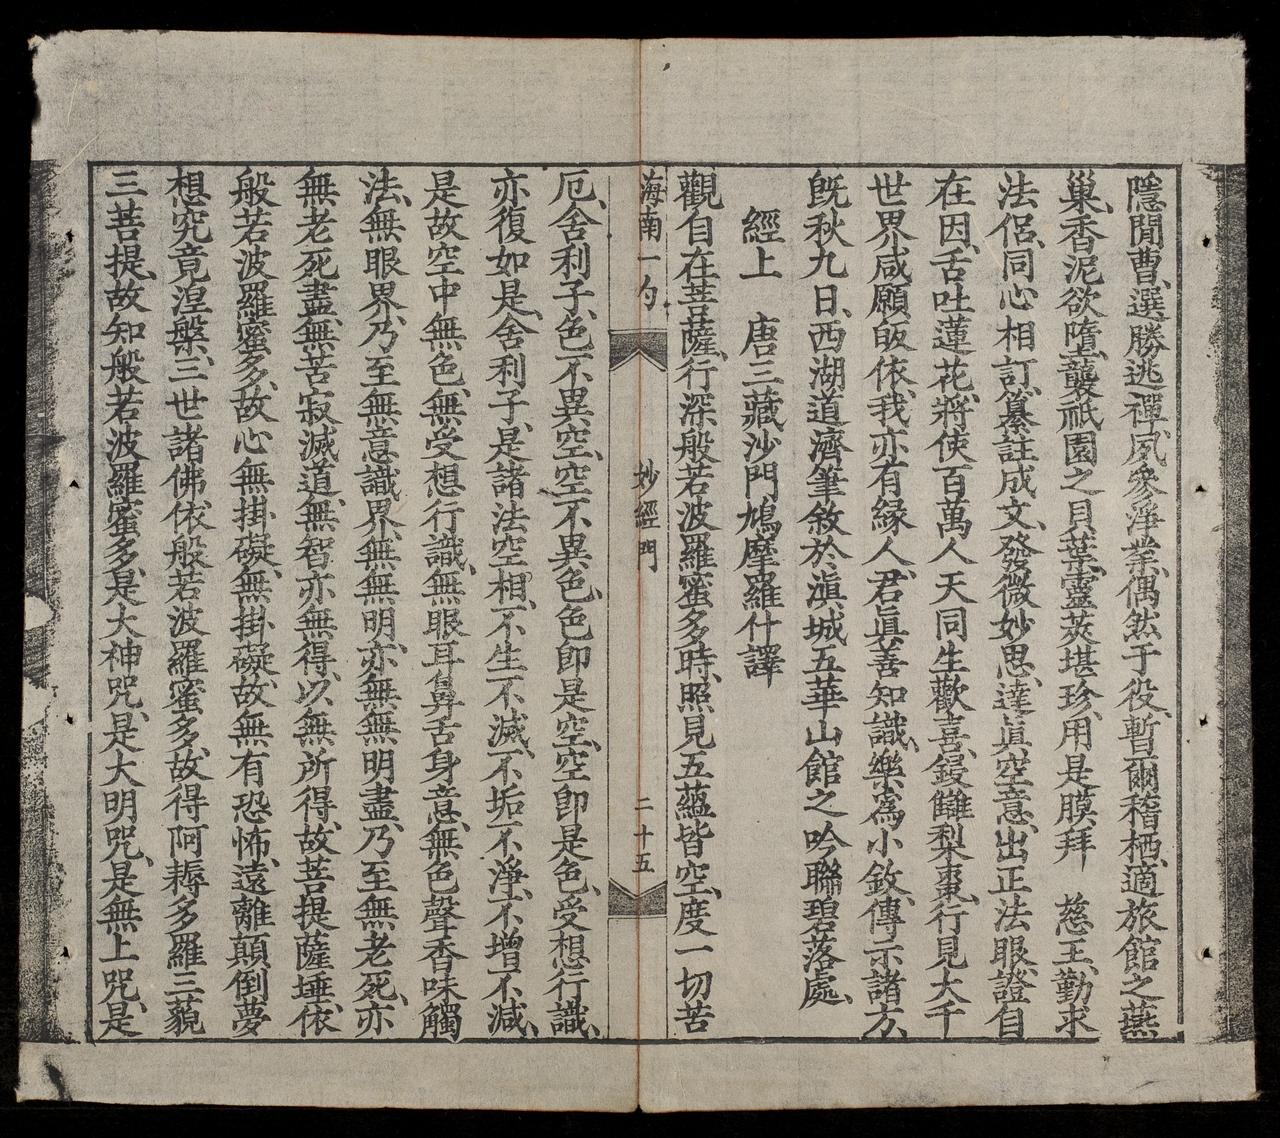 隱聞曹、選勝逃禪、夙參淨業、偶然于役、暫爾稽栖、適旅館之燕
巢、香泥欲墮、襲祇園之貝葉、靈莢堪珍、用是膜拜　慈王、勤求
法侶、同心相訂、纂註成文、發微妙思、達眞空意、出正法眼、證自
在因、舌吐蓮花、將使百萬人天同生歡喜、鋟雠梨棗、行見大千
世界咸願皈依、我亦有緣人、君眞善知識、樂爲小敘、傳示諸方、
旣秋九日、西湖道濟筆敘於滇城五華山館之吟聯碧落處、
經上　唐三藏沙門鳩摩羅什譯
觀自在菩薩、行深般若波羅蜜多時、照見五蘊皆空、度一切苦
海南一勺　妙經門　二十五
厄、舍利子、色不異空、空不異色、色卽是空、空卽是色、受想行識、
亦復如是、舍利子、是諸法空相、不生不滅、不垢不淨、不增不減、
是故空中無色、無受想行識、無眼耳鼻舌身意、無色聲香味觸
法、無眼界、乃至無意識界、無無明、亦無無明盡、乃至無老死、亦
無老死盡、無苦寂滅道、無智亦無得、以無所得、故菩提薩埵、依
般若波羅蜜多、故心無掛礙、無掛礙、故無有恐怖、遠離顛倒夢
想、究竟涅槃、三世諸佛、依般若波羅蜜多、故得阿耨多羅三藐
三菩提、故知般若波羅蜜多、是大神咒、是大明咒、是無上咒、是